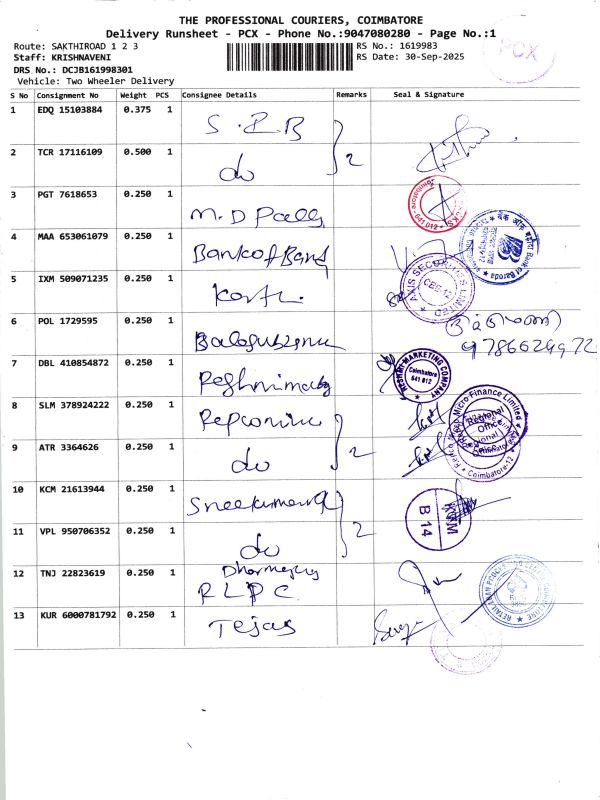 THE PROFESSIONAL COURIERS, COIMBATORE
Delivery Runsheet - PCX - Phone No.:9047080280 - Page No.:1
Route: SAKTHIROAD 1 2 3
RS No.: 1619983
Staff: KRISHNAVENI
RS Date: 30-Sep-2025
DRS No.: DCJB161998301
Vehicle: Two Wheeler Delivery
PCX
S No Consignment No Weight PCS Consignee Details Remarks Seal & Signature
1 EDQ 15103884 0.375 1
2 TCR 17116109 0.500 1 do 2
3 PGT 7618653 0.250 1 M.D Pally
641 012
4 MAA 653061079 0.250 1 Bank of Baroda
Bank of Baroda
5 IXM 509071235 0.250 1
AXIS SECURITIES LIMITED
CBE-12
6 POL 1729595 0.250 1
9786624972
7 DBL 410854872 0.250 1
RESHMI MARKETING COMPANY
Coimbatore
641 012
8 SLM 378924222 0.250 1
Micro Finance Limited
Regional
Office
Coimbatore-12
9 ATR 3364626 0.250 1 do 2
10 KCM 21613944 0.250 1
KCM
B 14
11 VPL 950706352 0.250 1 do 2
12 TNJ 22823619 0.250 1
R L P C
13 KUR 6000781792 0.250 1 Tejas